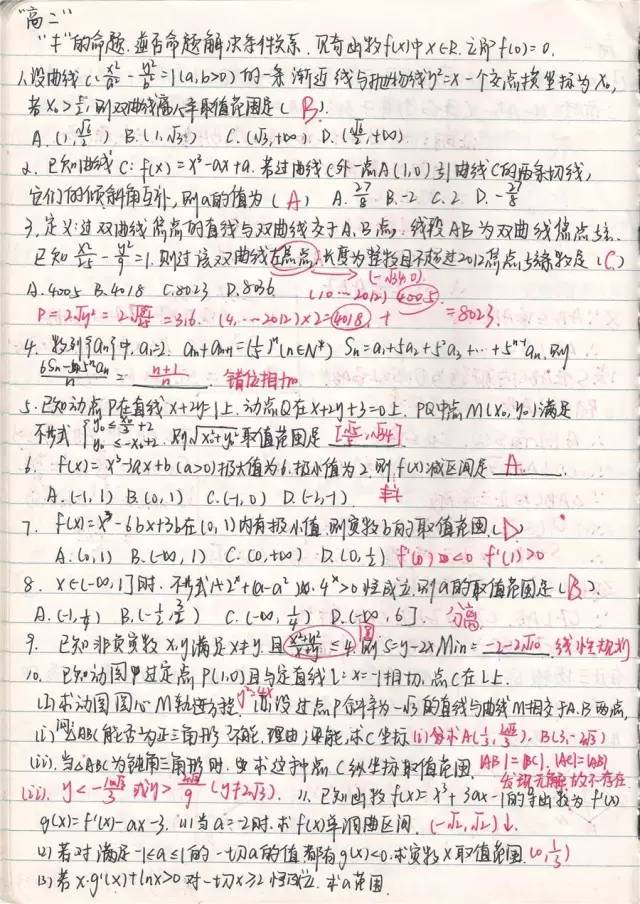 "高二"
"非"的命题,逆否命题解决条件关系.见奇函数f(x)中x∈R.立即f(0)=0.
1.设曲线C:x²/a²-y²/b²=1(a,b>0)的一条渐近线与抛物线y²=x一个交点横坐标为x₀,
若x₀>½,则双曲线离心率取值范围是( B ).
A.(1,√6/2) B.(1,√3) C.(√3,+∞) D.(√6/2,+∞)
2.已知曲线C:f(x)=x³-ax+a.若过曲线C外一点A(1,0)引曲线C的两条切线,
它们的倾斜角互补,则a的值为( A ) A.27/8 B.-2 C.2 D.-27/8
3.定义:过双曲线焦点的直线与双曲线交于A.B点.线段AB为双曲线焦点弦.
已知x²/25-y²/9=1.则过该双曲线左焦点,长度为整数且不超过2012焦点弦条数是( C )
(-√34,0)
A.4005 B.4018 C.8023 D.8036 (10…2012) 4005.
(4,…2012)×2=4018. + =8023.
4.数列{an}中,a₁=2. an+an+1=(1/5)ⁿ(n∈N*) Sn=a₁+5a₂+5²a₃+…+5ⁿ⁻¹an.则
= (n+1)/n 错位相加
5.已知动点P在直线x+2y=1上.动点Q在x+2y+3=0上. PQ中点M(x₀,y₀)满足
不等式 { y₀≤x₀/3+2 y₀≤-x₀+2. 则√x₀²+y₀²取值范围是 [√5/5,√34]
6. f(x)=x³-3ax+b(a>0)极大值为6.极小值为2.则f(x)减区间是 A.
A.(-1,1) B.(0,1) C.(-1,0) D.(-2,-1)
7. f(x)=x³-6bx+3b在(0,1)内有极小值.则实数b的取值范围.( D )
A.(0,1) B.(-∞,1) C.(0,+∞) D.(0,½) f'(0)<0 f'(1)>0
8. x∈(-∞,1]时.不等式1+2ˣ+(a-a²)·4ˣ>0恒成立.则a的取值范围是( B ).
A.(-1,¼) B.(-½,3/2) C.(-∞,¼) D.(-∞,6] 分离
9. 已知非负实数x,y满足x≠y.且(x²+y²)/(x+y)≤4.则S=y-2x Min= -2-2√10. 线性规划
圆
10. 已知动圆过定点P(1,0)且与定直线l:x=-1相切.点C在l上.
(1)求动圆圆心M轨迹方程. y²=4x (2)设过点P斜率为-√3的直线与曲线M相交于A.B两点,
(i)问△ABC能否为正三角形 不能.理由;若能,求C坐标(i)分求A(1/3,2√3/3).B(3,-2√3)
(ii).当△ABC为钝角三角形时.求这时点C纵坐标取值范围. |AB|=|BC|.|AC|=|AB|
发现无解故不存在.
(ii). y<-10√3/3 或y>2√3/9 (y≠2√3). 11.已知函数f(x)=x³+3ax-1的导函数为f'(x)
g(x)=f'(x)-ax-3. (1)当a=-2时.求f(x)单调曲区间. (-√2,√2)↓.
(2)若对满足-1≤a≤1的一切a的值都有g(x)<0.求实数x取值范围. (0,1/3)
(3)若x·g'(x)+lnx>0对一切x≥2恒成立.求a范围.